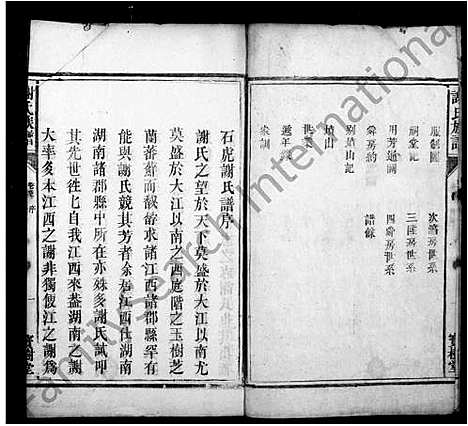 謝氏族譜
服制圖
祠堂記
用芳通關
舜房約
別墳山記
墳山
世
遞年
家訓
次濟房世系
三房世系
四房世系
譜錄
寶樹堂
石虎謝氏譜序
謝氏之望於天下莫盛於大江以南尤
莫盛於大江以南之西庭階之玉樹芝
蘭蕃薺而馥馡求諸江西諸郡縣罕有
能與謝氏競其芳者余産江西仕湖南
湖南諸郡縣中所在亦殊多謝氏試叩
其先世徃徃自我江西來葢湖南之謝
大率多本江西之謝非獨仮江之謝爲
謝氏族譜
序
寶樹堂
FamilySearch International